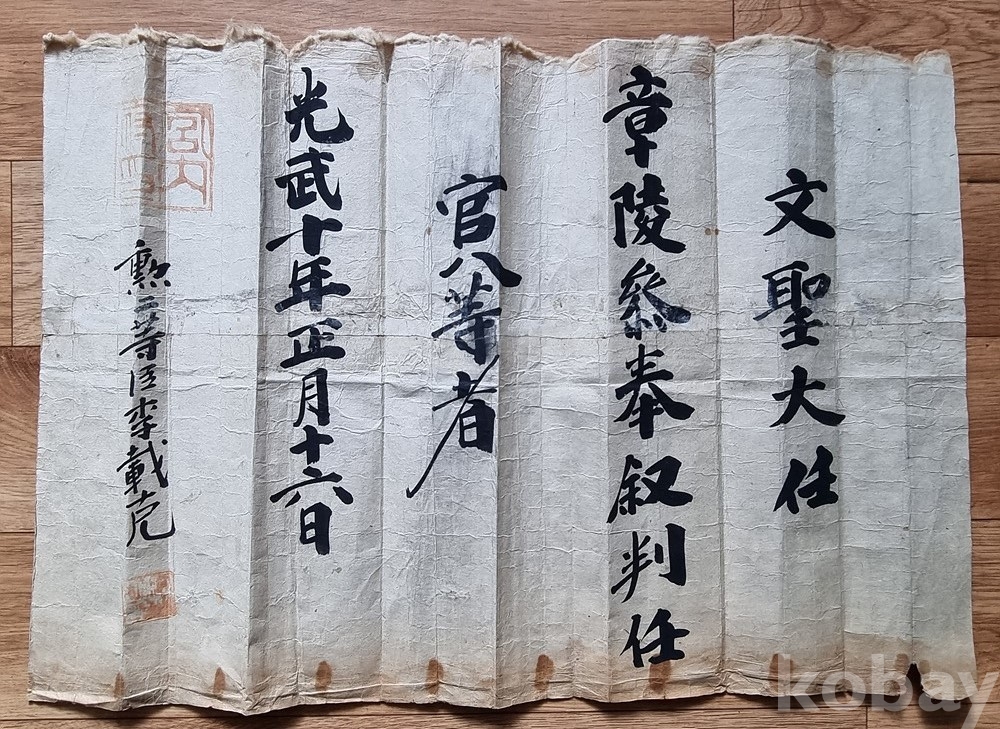 文聖大任
章陵參奉叙判任
官八等者
光武十年正月十六日
勲二等臣李載克
宮內
kobay